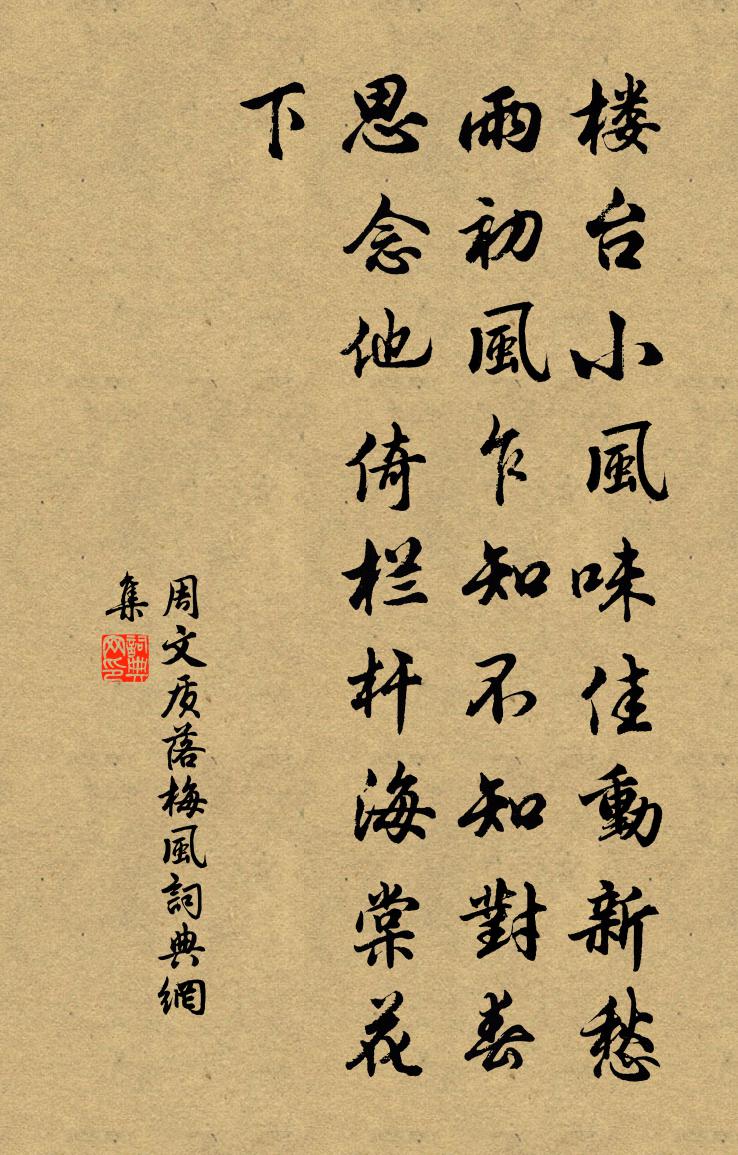 楼台小風味佳動新愁
雨初風乍知不知對春
思念他倚栏杆海棠花
下
周文质落梅風詞典網
集
詞典
网印